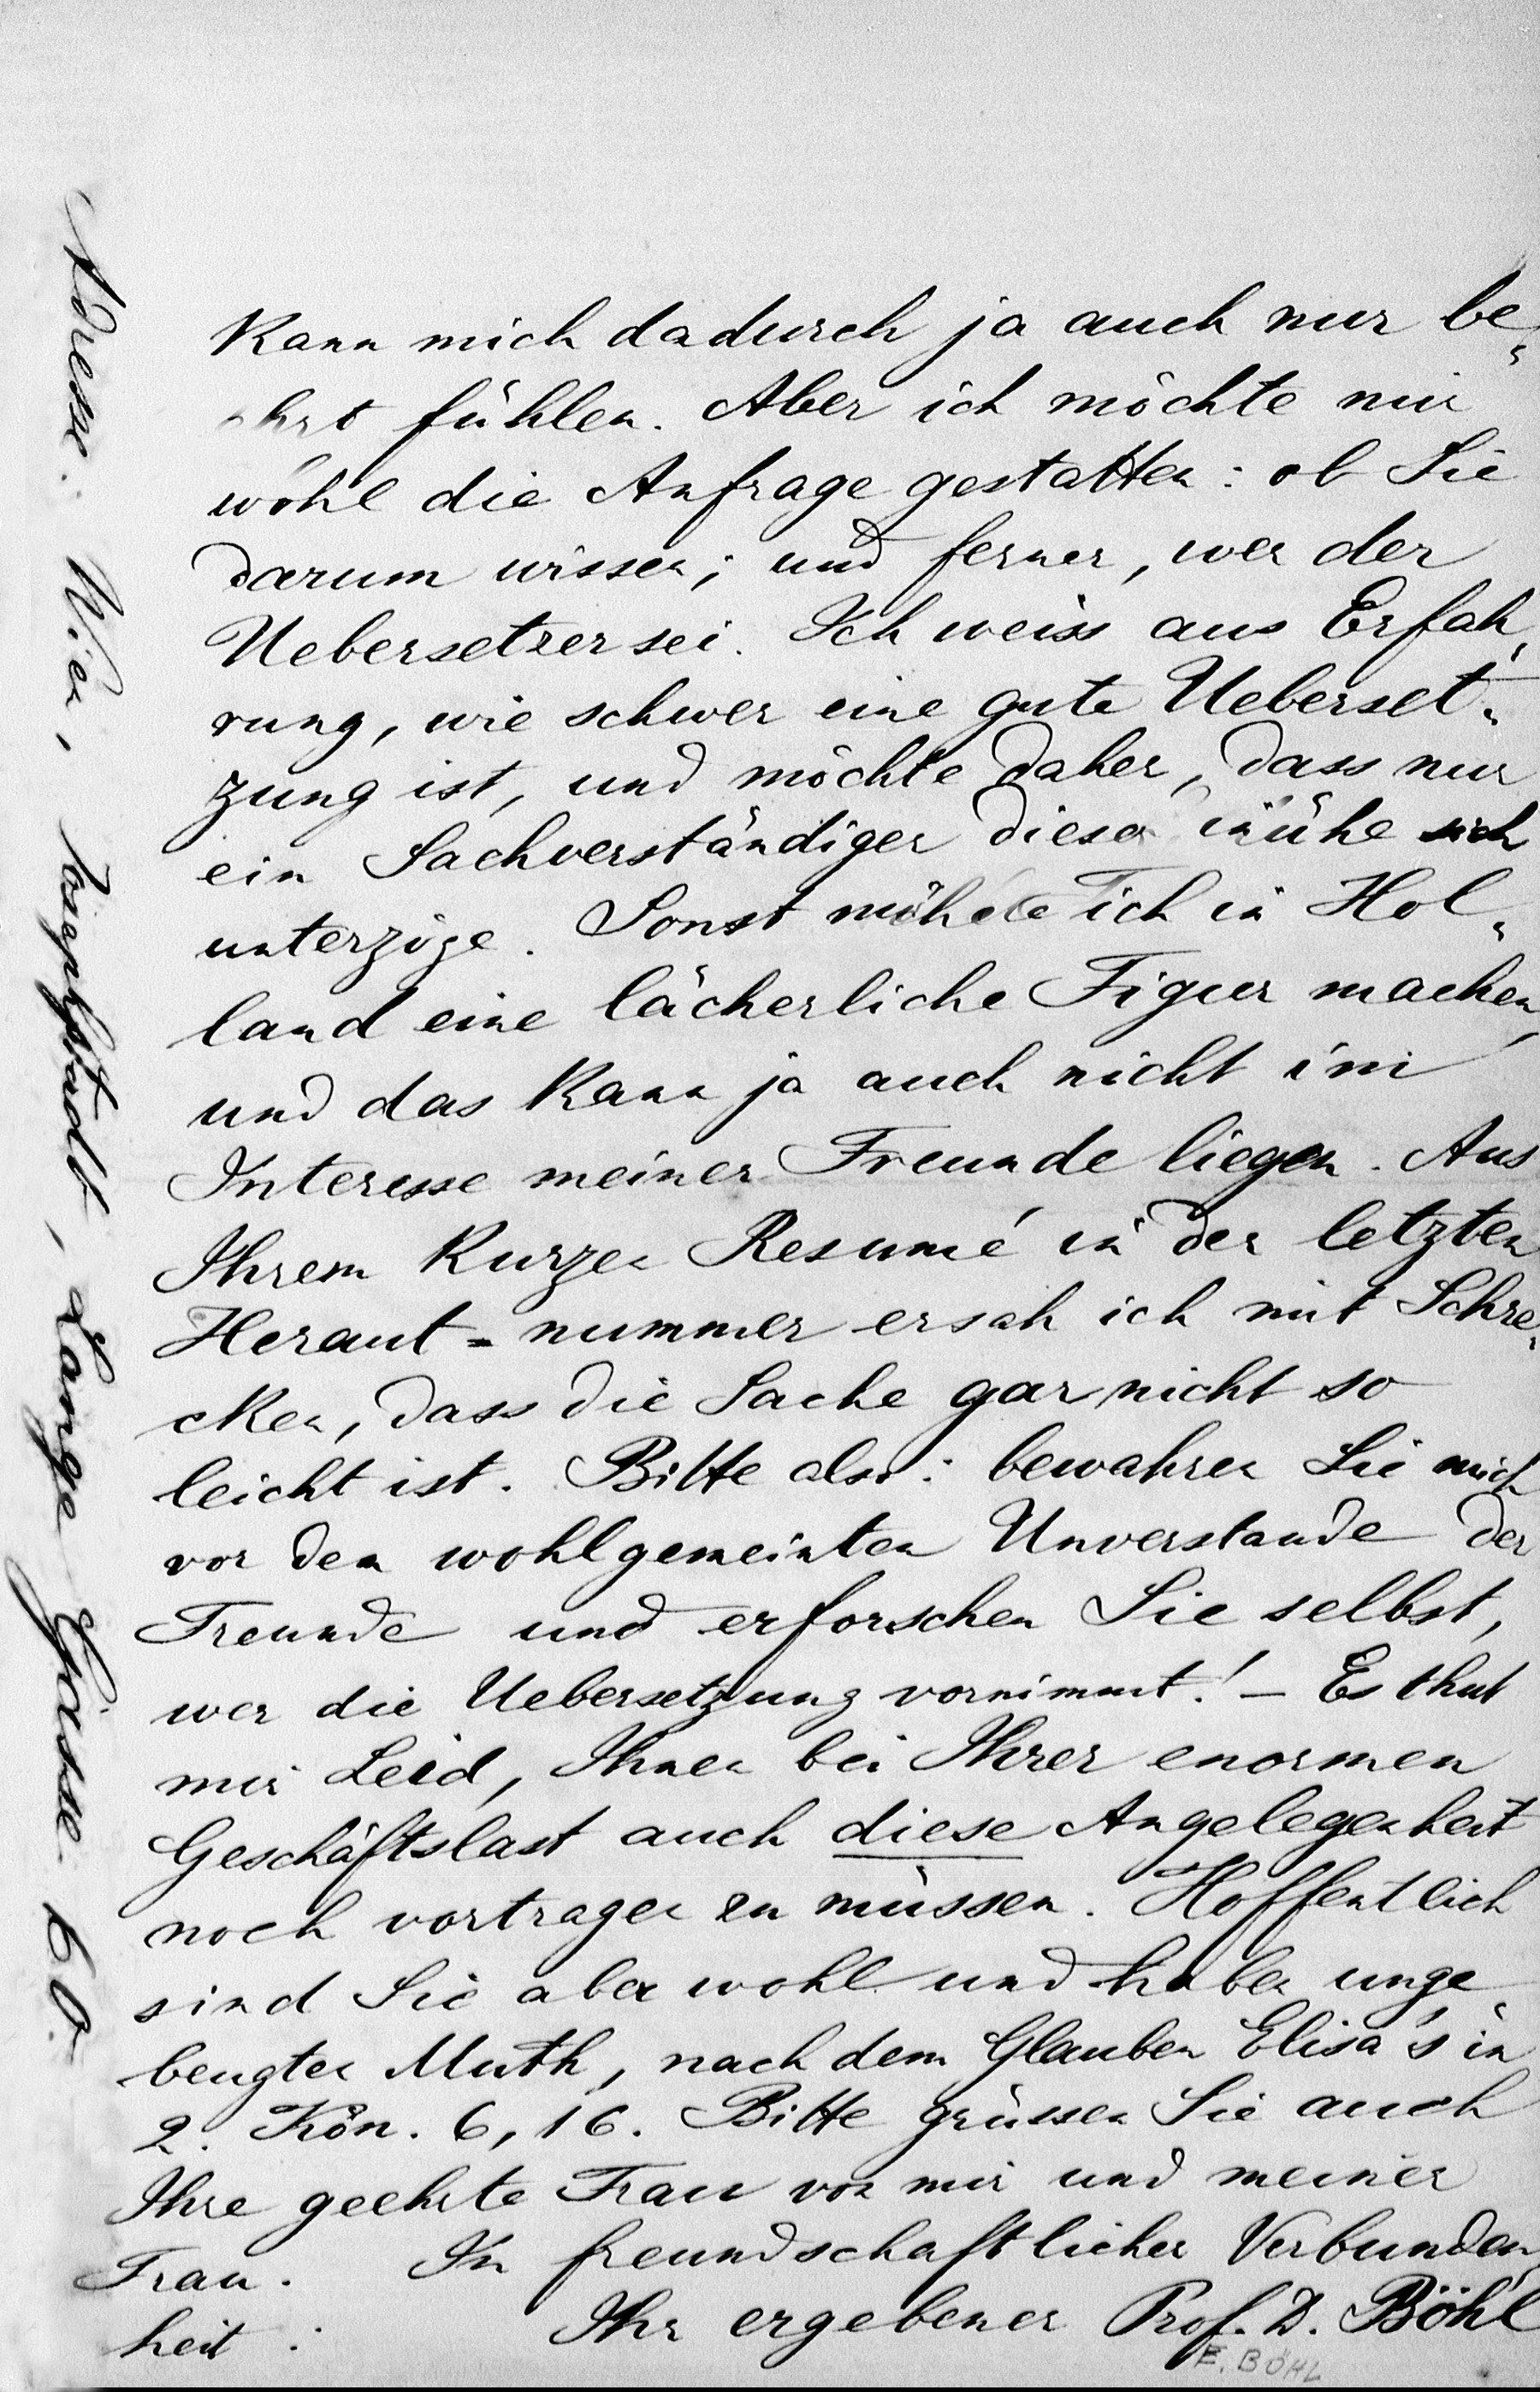 kann mich dadurch ja auch nur be-
ehrt fühlen. Aber ich möchte mir
wohl die Anfrage gestatten: ob Sie
darum wissen; und ferner, wer der
Uebersetzer sei. Ich weiss aus Erfah-
rung, wie schwer eine gute Ueberset-
zung ist, und möchte daher, dass nur
ein Sachverständiger dieser Mühe sich
unterzöge. Sonst möchte ich in Hol-
land eine lächerliche Figur machen,
und das kann ja auch nicht im
Interesse meiner Freunde liegen. Aus
Ihrem kurzen Resumé in der letzten
Heraut-nummer ersah ich mit Schre-
cken, dass die Sache gar nicht so
leicht ist. Bitte also: bewahren Sie mich
vor dem wohlgemeinten Unverstande der
Freunde und erforschen Sie selbst,
wer die Uebersetzung vornimmt! — Es thut
mir Leid, Ihnen bei Ihrer enormen
Geschäftslast auch diese Angelegenheit
noch vortragen zu müssen. Hoffentlich
sind Sie aber wohl und haben unge-
beugten Muth, nach dem Glauben Elisa's in
2. Kön. 6, 16. Bitte grüssen Sie auch
Ihre geehrte Frau von mir und meiner
Frau. In freundschaftlicher Verbunden-
heit:
Ihr ergebener Prof. D. Böhl
E. BÖHL
Adresse: Wien, Josephstadt, Lange Gasse 60.